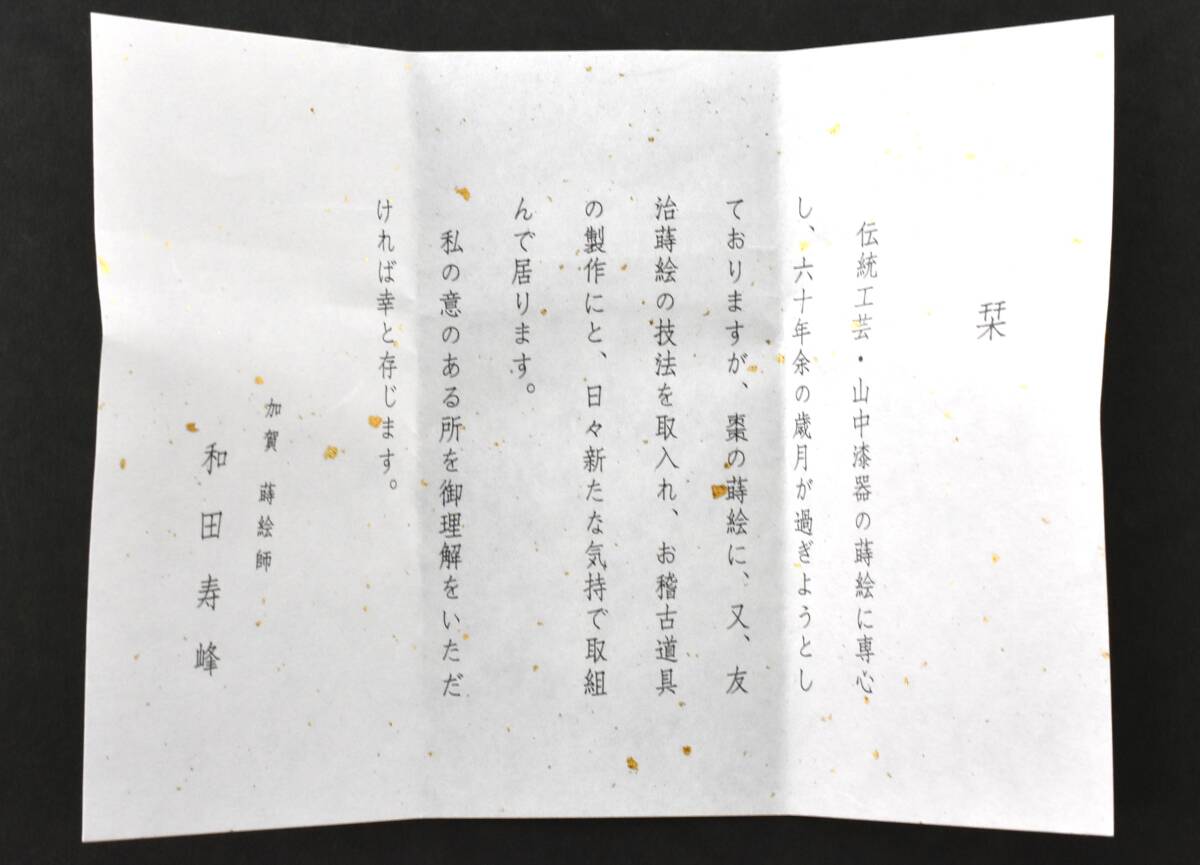 栞
伝統工芸・山中漆器の蒔絵に専心
し、六十年余の歳月が過ぎようとし
ておりますが、棗の蒔絵に、又、友
治蒔絵の技法を取入れ、お稽古道具
の製作にと、日々新たな気持で取組
んで居ります。
私の意のある所を御理解をいただ
ければ幸と存じます。
加賀 蒔絵師
和田寿峰